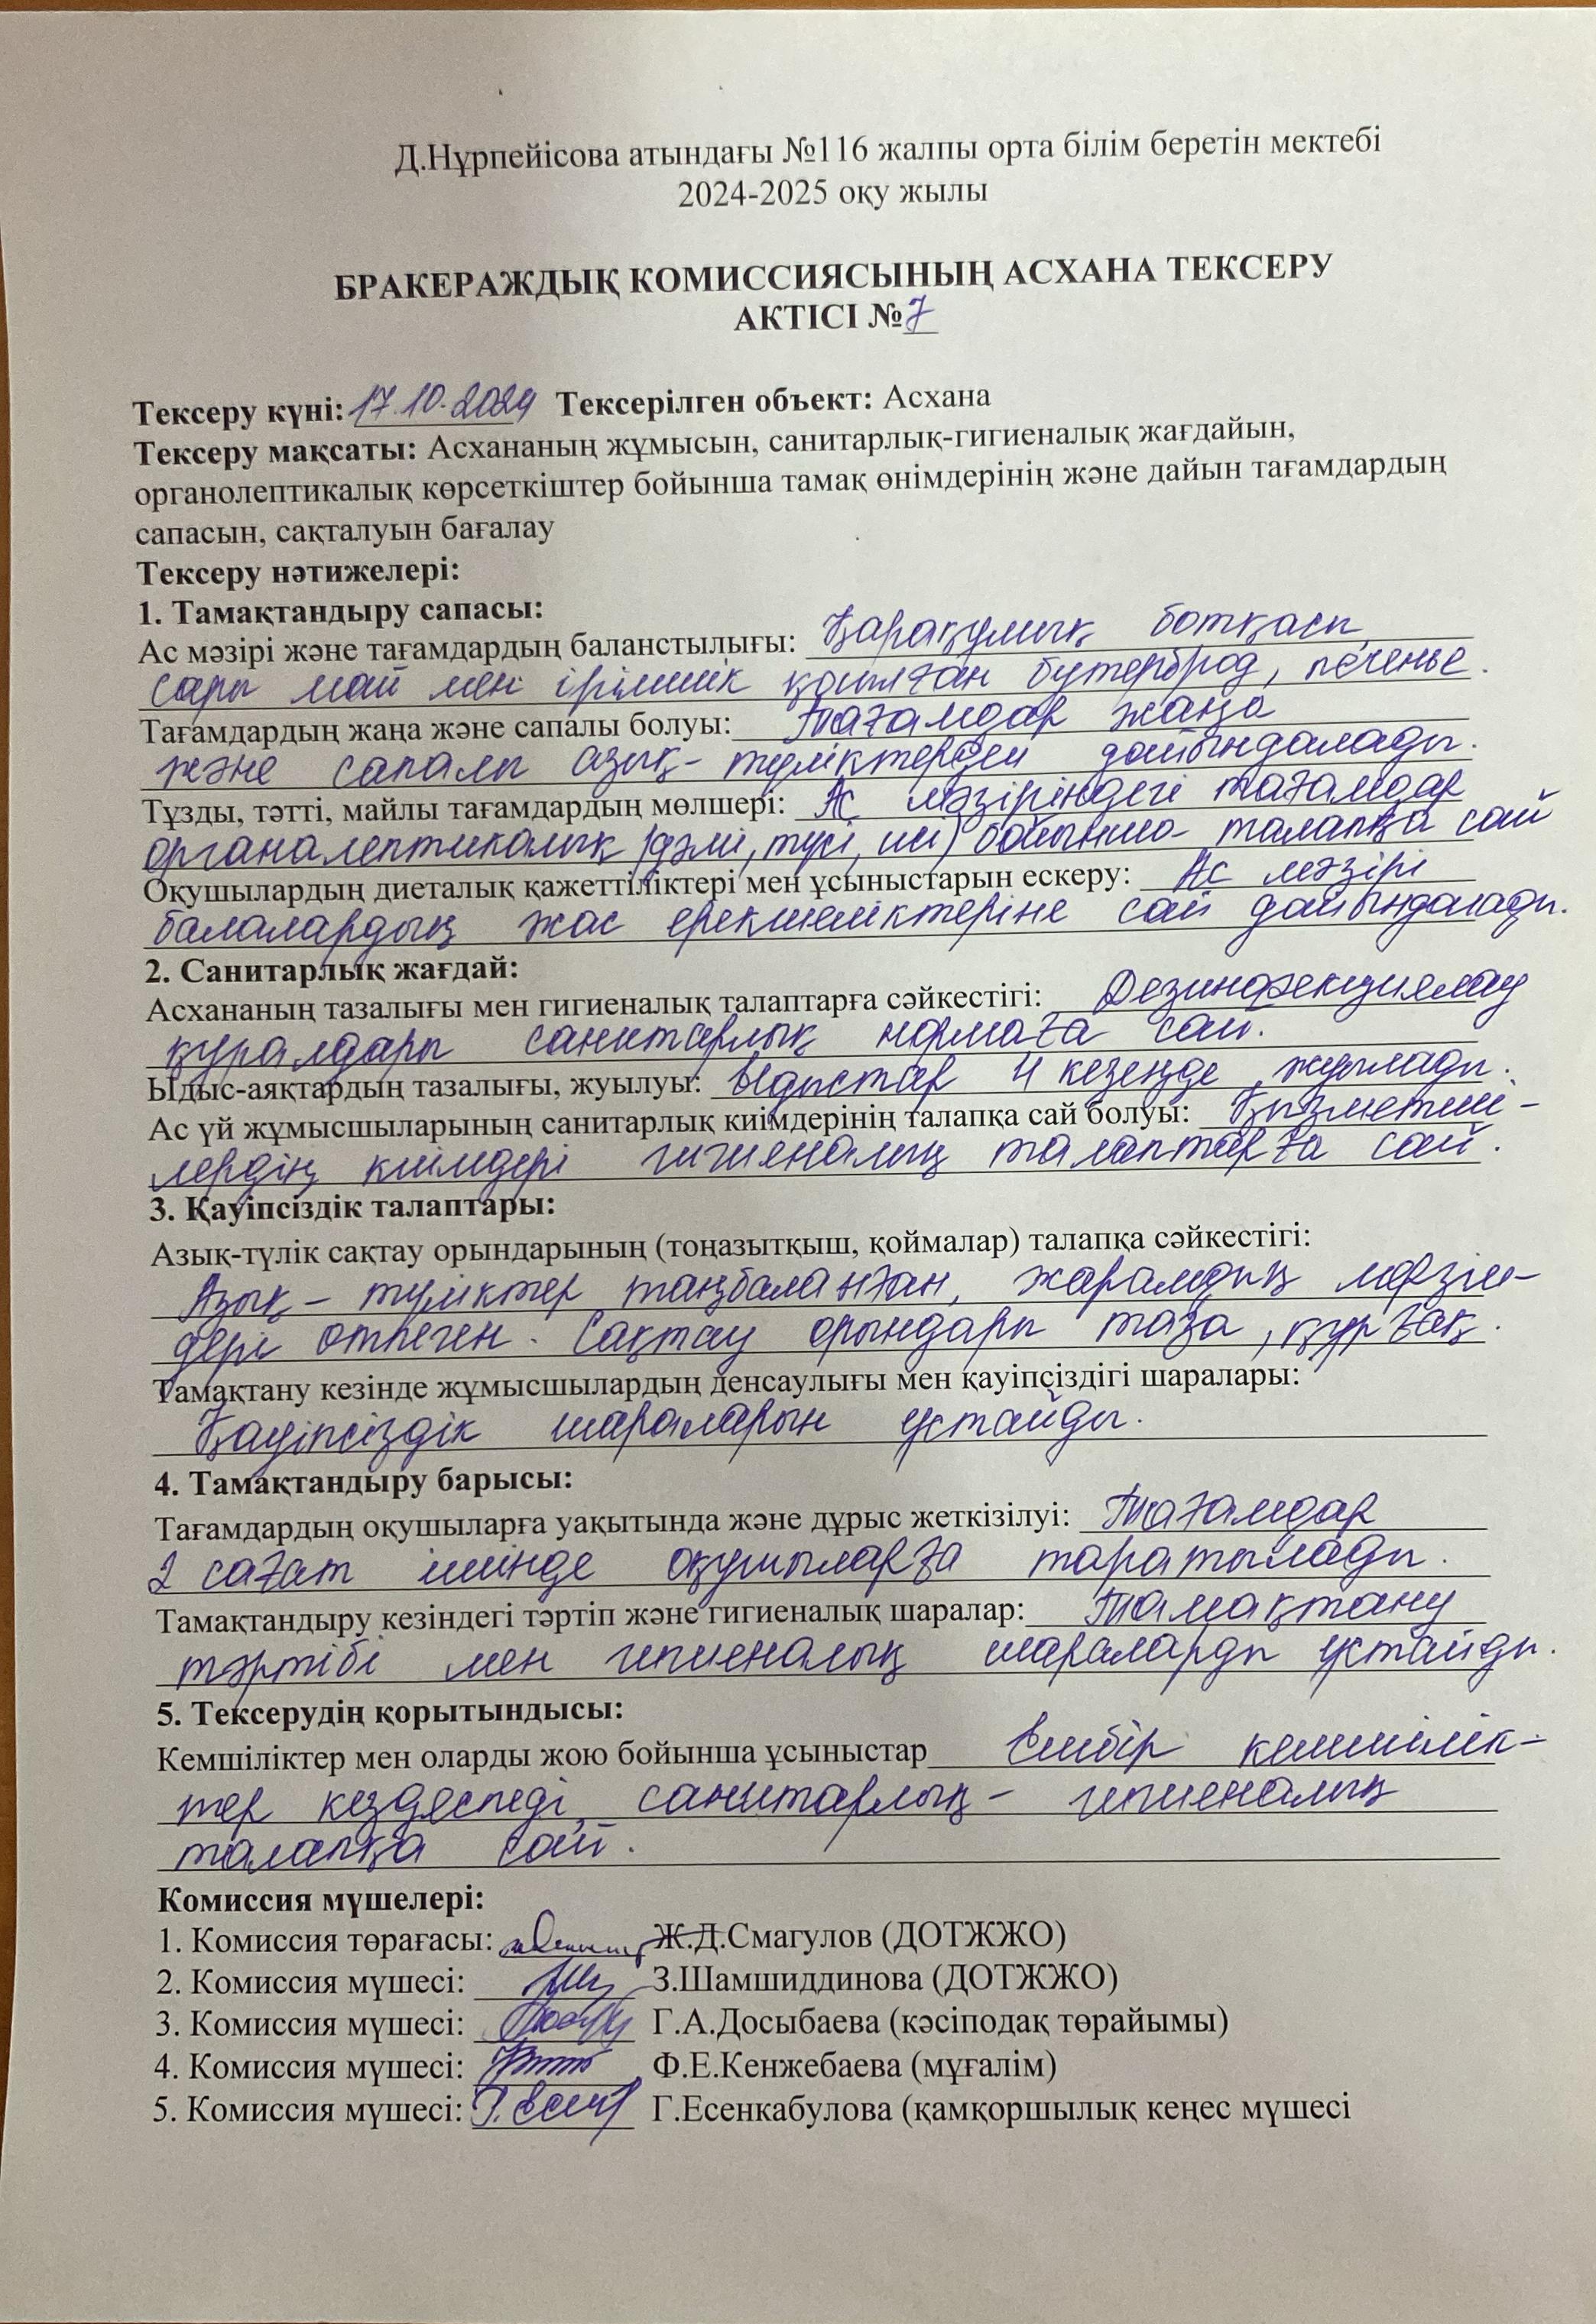 Д.Нұрпейісова атындағы №116 жалпы орта білім беретін мектебі
2024-2025 оқу жылы
БРАКЕРАЖДЫҚ КОМИССИЯСЫНЫҢ АСХАНА ТЕКСЕРУ
АКТІСІ №7
Тексеру күні: 17.10.2024 Тексерілген объект: Асхана
Тексеру мақсаты: Асхананың жұмысын, санитарлық-гигиеналық жағдайын,
органолептикалық көрсеткіштер бойынша тамақ өнімдерінің және дайын тағамдардың
сапасын, сақталуын бағалау
Тексеру нәтижелері:
1. Тамақтандыру сапасы:
Ас мәзірі және тағамдардың баланстылығы: Қарақұмық ботқасы,
сары май мен ірімшік қосылған бутерброд, печенье.
Тағамдардың жаңа және сапалы болуы: Тағамдар жаңа
және сапалы азық-түліктерден дайындалады.
Тұзды, тәтті, майлы тағамдардың мөлшері: Ас мәзіріндегі тағамдар
органалептикалық (дәмі, түсі, иісі) бойынша талапқа сай
Оқушылардың диеталық қажеттіліктері мен ұсыныстарын ескеру: Ас мәзірі
балалардың жас ерекшеліктеріне сай дайындалады.
2. Санитарлық жағдай:
Асхананың тазалығы мен гигиеналық талаптарға сәйкестігі: Дезинфекциялау
құралдары санитарлық нормаға сай.
Ыдыс-аяқтардың тазалығы, жуылуы: Ыдыстар 4 кезеңде жуылады.
Ас үй жұмысшыларының санитарлық киімдерінің талапқа сай болуы: Қызметші-
лердің киімдері гигиеналық талаптарға сай.
3. Қауіпсіздік талаптары:
Азық-түлік сақтау орындарының (тоңазытқыш, қоймалар) талапқа сәйкестігі:
Азық-түліктер таңбаланған, жарамдық мерзім-
дері өтпеген. Сақтау орындары таза, құрғақ.
Тамақтану кезінде жұмысшылардың денсаулығы мен қауіпсіздігі шаралары:
Қауіпсіздік шараларын ұстайды.
4. Тамақтандыру барысы:
Тағамдардың оқушыларға уақытында және дұрыс жеткізілуі: Тағамдар
2 сағат ішінде оқушыларға таратылады.
Тамақтандыру кезіндегі тәртіп және гигиеналық шаралар: Тамақтану
тәртібі мен гигиеналық шараларды ұстайды.
5. Тексерудің қорытындысы:
Кемшіліктер мен оларды жою бойынша ұсыныстар Ешбір кемшілік-
тер кездеспеді, санитарлық-гигиеналық
талапқа сай.
Комиссия мүшелері:
1. Комиссия төрағасы: Ж.Д.Смагулов (ДОТЖЖО)
2. Комиссия мүшесі: З.Шамшиддинова (ДОТЖЖО)
3. Комиссия мүшесі: Г.А.Досыбаева (кәсіподақ төрайымы)
4. Комиссия мүшесі: Ф.Е.Кенжебаева (мұғалім)
5. Комиссия мүшесі: Г.Есенкабулова (қамқоршылық кеңес мүшесі